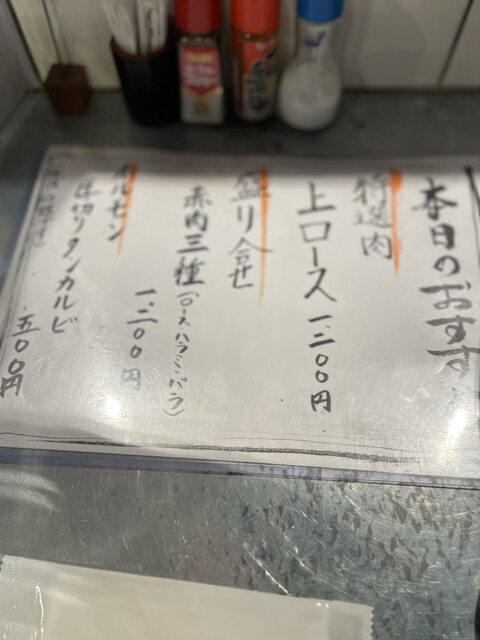 本日のおすす
特選肉
上ロース 一、二〇〇円
盛り合せ
赤肉三種(ロース ハラミ バラ)
一、二〇〇円
ホルモン
厚切りタンカルビ
五〇〇円